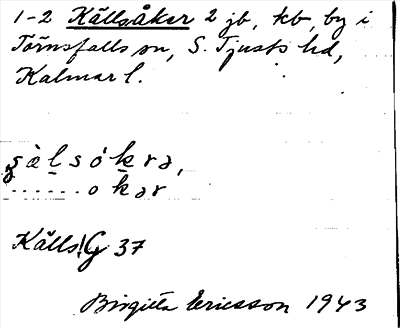 1-2 Källsåker 2 jb, kb, by i
Törnsfalls sn, S. Tjusts hd,
Kalmar l.
sàlsókrə,
......okər
Källs!G 37
Birgitta Ericsson 1943